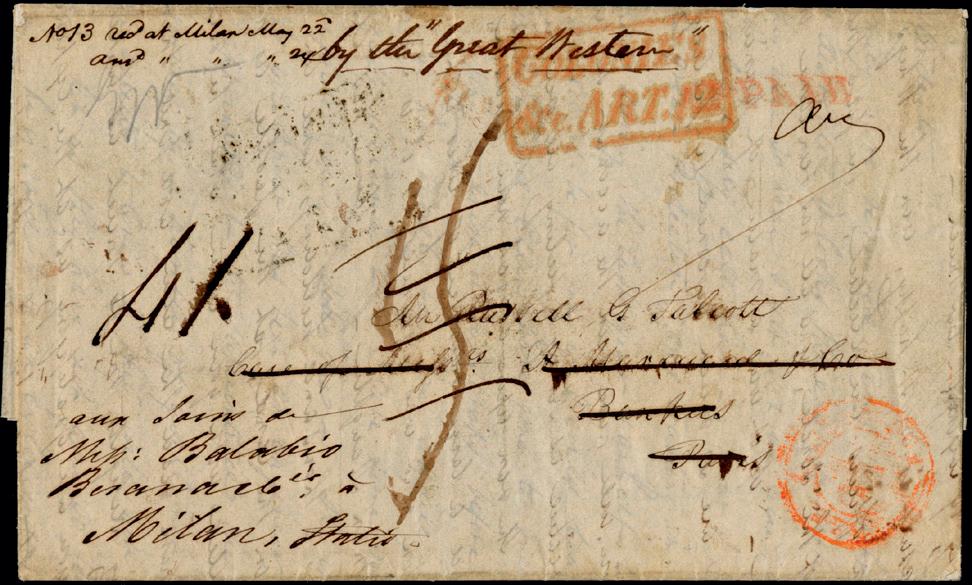 No 13 recd at Milan May 22d
ansd " " " 24
by the "Great Western"
COLONIES
&c. ART. 12
PAID
Mr Russell G Talcott
Care of Messrs
& Co
Bankers
Paris
aux soins de
Mess: Balabio
Besana & Cie à
Milan,